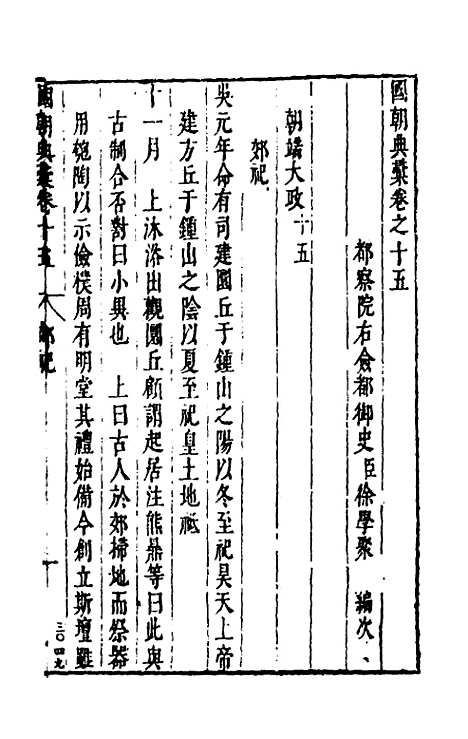 國朝典彙卷之十五
都察院右僉都御史臣徐學聚 編次
朝端大政十五
郊祀
吳元年命有司建圜丘于鍾山之陽以冬至祀昊天上帝
建方丘于鍾山之陰以夏至祀皇土地祇
十一月 上沐浴出觀圜丘顧謂起居注熊鼎等曰此與
古制合否對曰小異也 上曰古人於郊掃地而祭器
用匏陶以示儉樸周有明堂其禮始備今創立斯壇雖
國朝典彙卷十五 郊祀 一
三〇四九